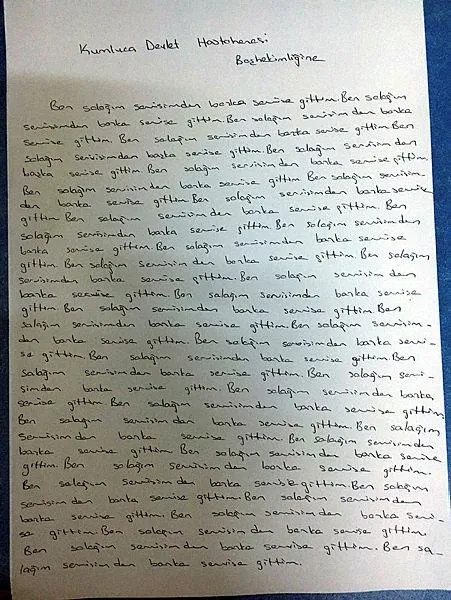 Kumluca Devlet Hastahanesi
Başhekimliğine
Ben salağım servisimden başka servise gittim. Ben salağım
servisimden başka servise gittim. Ben salağım servisimden başka
servise gittim. Ben salağım servisimden başka servise gittim. Ben
salağım servisimden başka servise gittim. Ben salağım servisimden
başka servise gittim. Ben salağım servisimden başka servise gittim.
Ben salağım servisimden başka servise gittim. Ben salağım servisim-
den başka servise gittim. Ben salağım servisimden başka servise
gittim. Ben salağım servisimden başka servise gittim. Ben
salağım servisimden başka servise gittim. Ben salağım servisimden
başka servise gittim. Ben salağım servisimden başka servise
gittim. Ben salağım servisimden başka servise gittim. Ben salağım
servisimden başka servise gittim. Ben salağım servisimden
başka servise gittim. Ben salağım servisimden başka servise
gittim. Ben salağım servisimden başka servise gittim. Ben
salağım servisimden başka servise gittim. Ben salağım servisim-
den başka servise gittim. Ben salağım servisimden başka servi-
se gittim. Ben salağım servisimden başka servise gittim. Ben
salağım servisimden başka servise gittim. Ben salağım servi-
simden başka servise gittim. Ben salağım servisimden başka
servise gittim. Ben salağım servisimden başka servise gittim.
Ben salağım servisimden başka servise gittim. Ben salağım
servisimden başka servise gittim. Ben salağım servisimden
başka servise gittim. Ben salağım servisimden başka servise
gittim. Ben salağım servisimden başka servise gittim.
Ben salağım servisimden başka servise gittim. Ben salağım
servisimden başka servise gittim. Ben salağım servisimden
başka servise gittim. Ben salağım servisimden başka servi-
se gittim. Ben salağım servisimden başka servise gittim.
Ben salağım servisimden başka servise gittim. Ben sa-
lağım servisimden başka servise gittim.